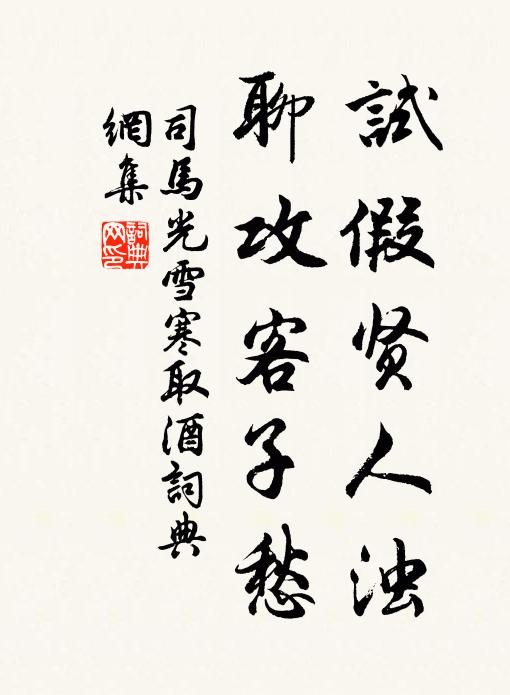 試假贤人浊
聊攻客子愁
司馬光雪寒取酒詞典
網集
詞典
网印